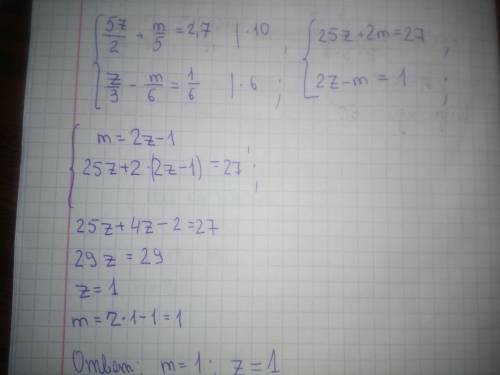 { 5z/2 + m/5 = 2,7 | · 10 ; { 25z + 2m = 27 ;
z/3 - m/6 = 1/6 | · 6 ; 2z - m = 1 ;
{ m = 2z - 1 ;
25z + 2 · (2z - 1) = 27 ;
25z + 4z - 2 = 27
29z = 29
z = 1
m = 2 · 1 - 1 = 1
Ответ: m = 1; z = 1